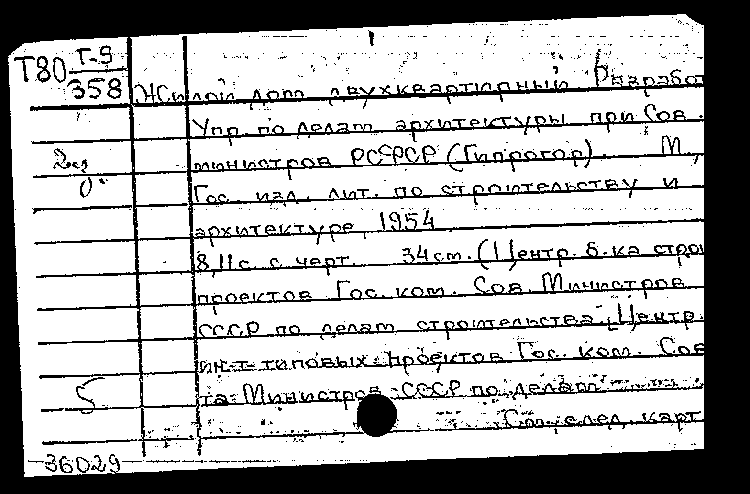 Т80 Т-9
358
Жилой дом двухквартирный Разработ
Упр. по делам архитектуры при Сов.
министров РСФСР (Гипрогор). М.,
Гос. изд. лит. по строительству и
архитектуре, 1954
8,11 с. с черт. 34 см. (Центр. б-ка строи
проектов Гос. ком. Сов. Министров
СССР по делам строительства. Центр.
ин-т типовых проектов Гос. ком. Сов
та Министров СССР по делам
См. след. карт
5
36029